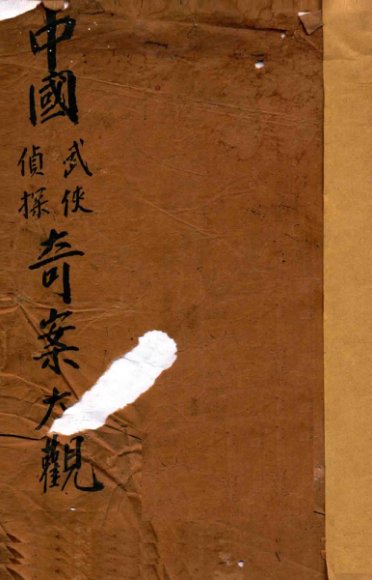 中國
武俠
偵探
奇案大觀